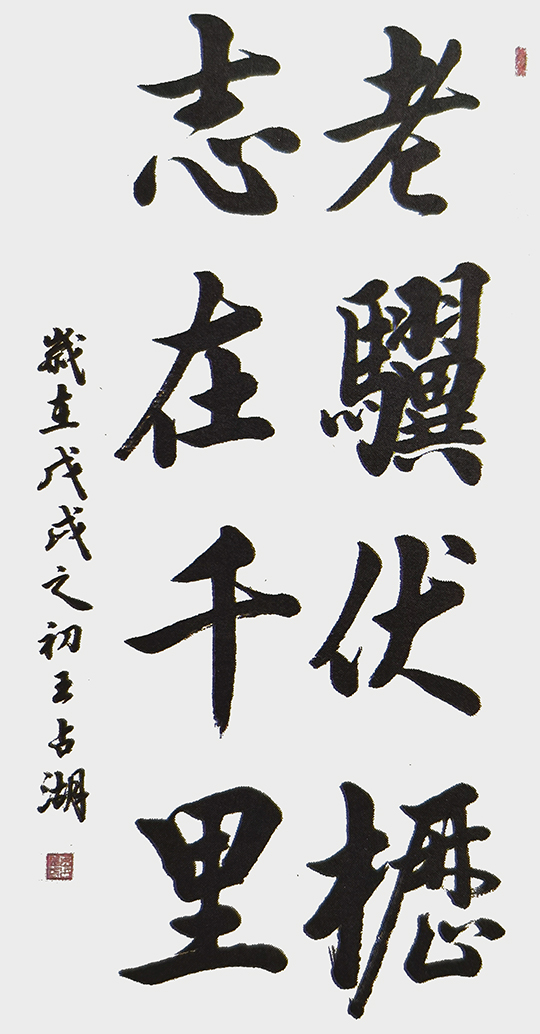 老驥伏櫪
志在千里
歲在戊戌之初王占湖